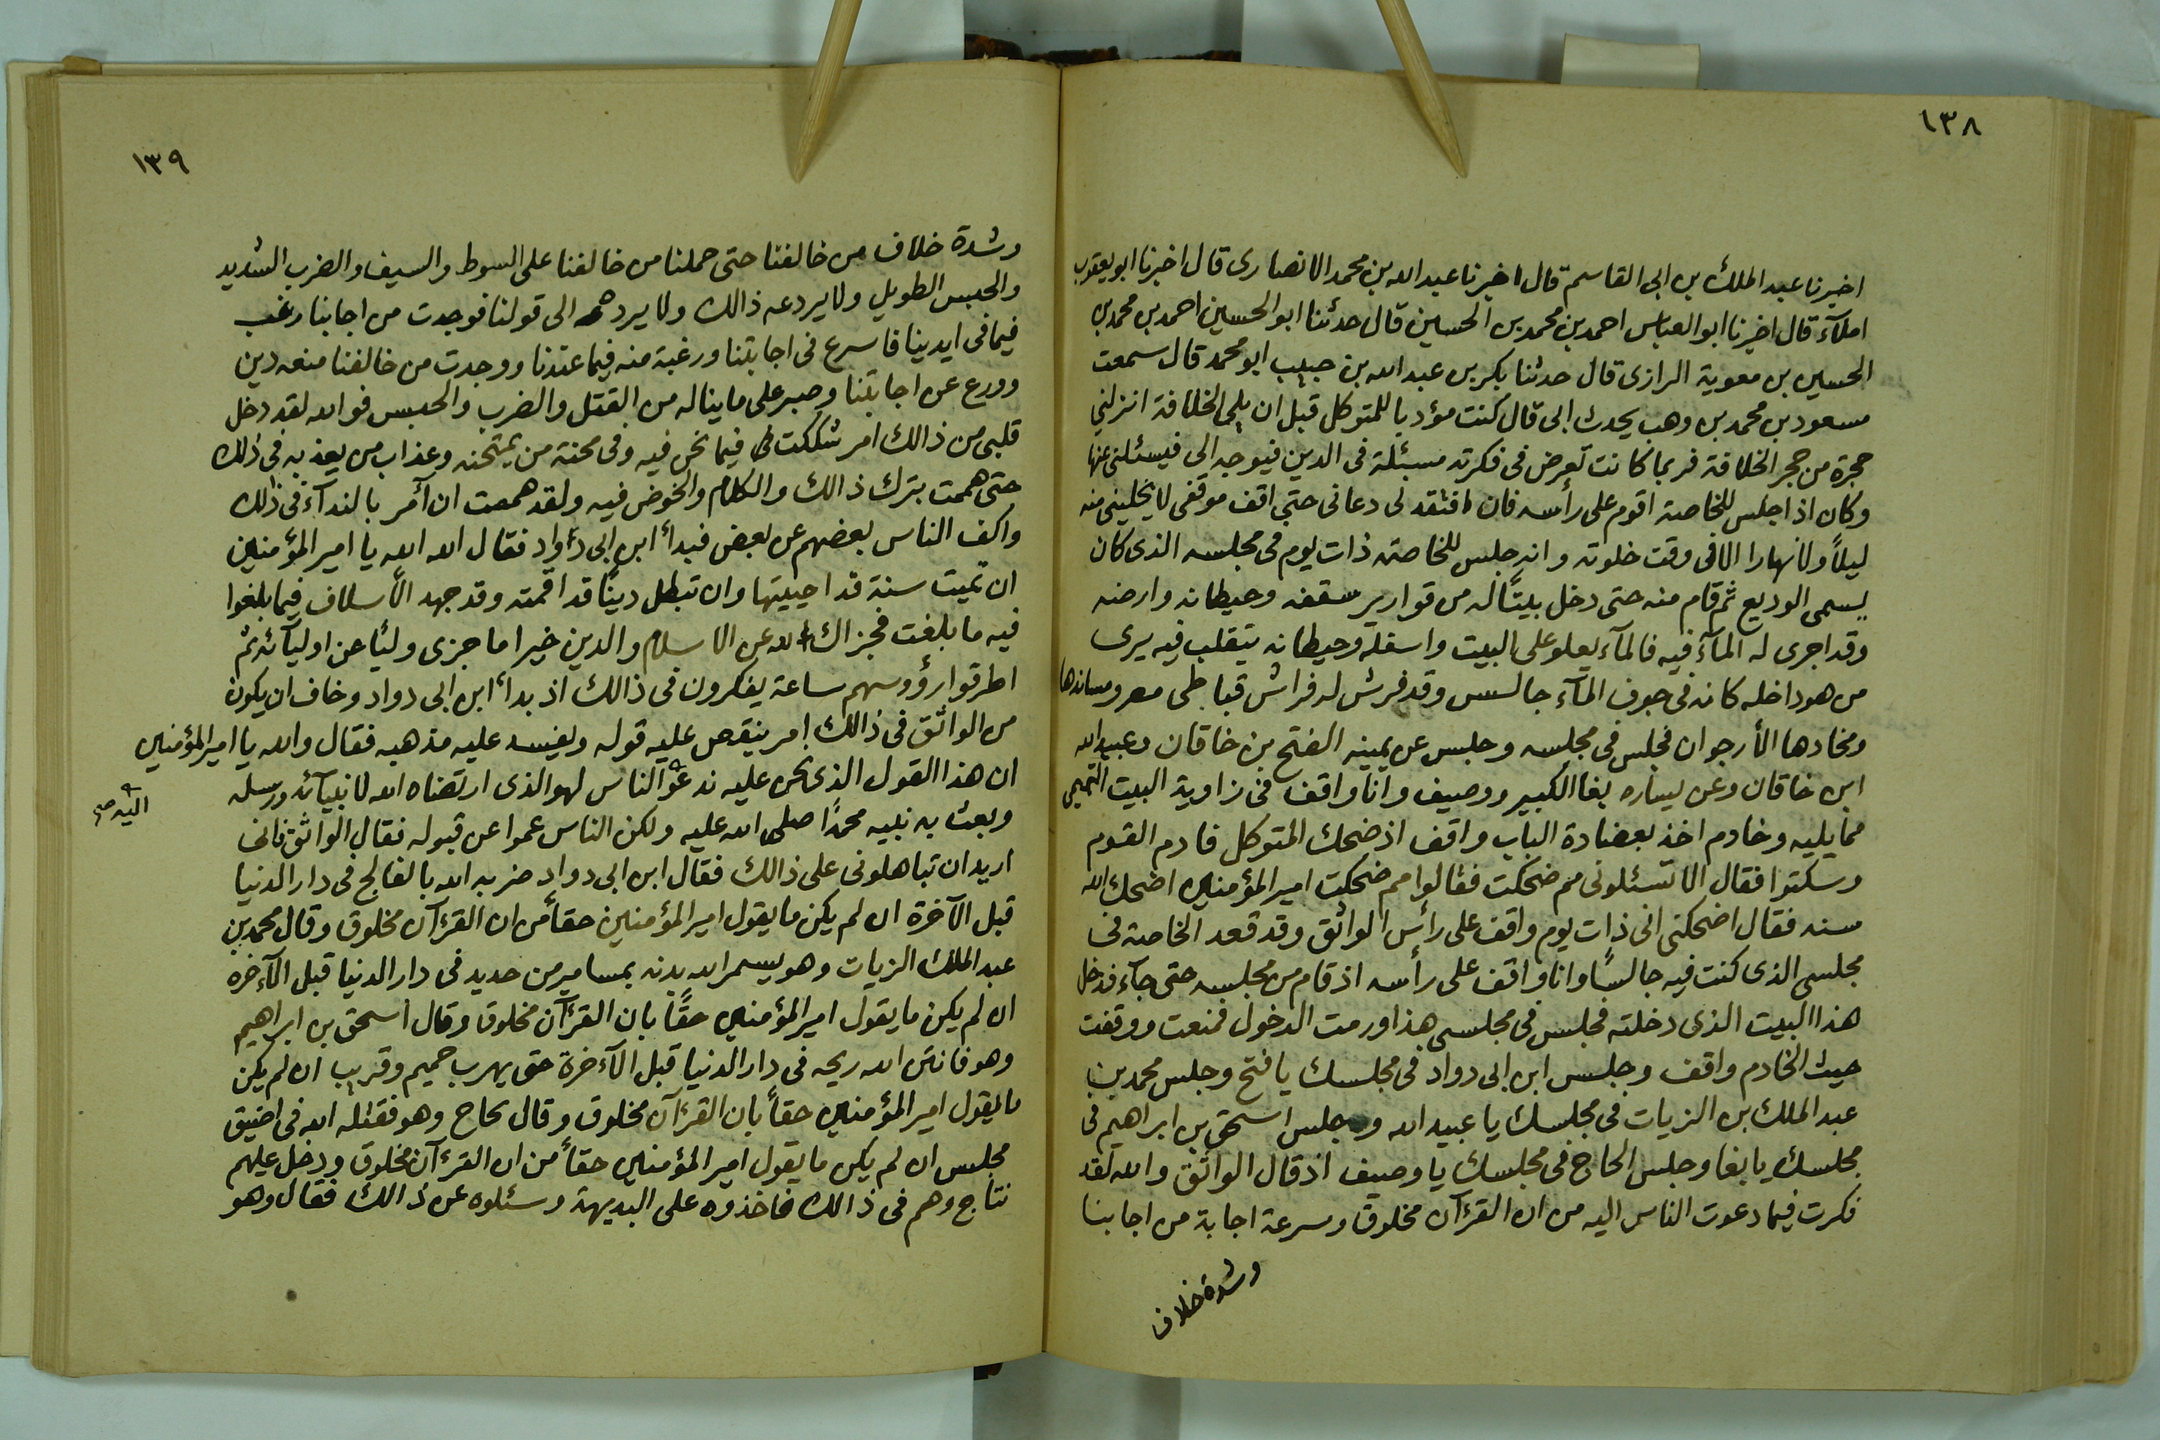 ١٣٨
اخبرنا عبد الملك بن ابى القاسم قال اخبرنا عبد الله بن محمد الانصارى قال اخبرنا ابو يعقوب
املآء قال اخبرنا ابو العباس احمد بن محمد بن الحسين قال حدثنا ابو الحسين احمد بن محمد بن
الحسين بن معوية الرازى قال حدثنا بكر بن عبد الله بن حبيب ابو محمد قال سمعت
مسعود بن محمد بن وهب يحدث ابى قال كنت مؤدبا للمتوكل قبل ان يلى الخلافة انزلنى
حجرة من حجر الخلافة فربما كانت تعرض فى فكرته مسئلة فى الدين فيوجه الى فيسئلنى عنها
وكان اذا جلس للخاصة اقوم على رأسه فان افتقد لى دعانى حتى اقف موقفى لا يخلينى منه
ليلًا ولا نهارا الا فى وقت خلوته وانه جلس للخاصة ذات يوم فى مجلسه الذى كان
يسمى الوديع ثم قام منه حتى دخل بيتًا له من قوارير سقفه وحيطانه وارضه
وقد اجرى له المآء فيه فالمآء يعلو على البيت واسفله وحيطانه يتقلب فيه يرى
من هو داخله كانه فى جوف المآء جالسس وقد فرش له فراش قباطى مصر ومساندها
ومخادها الأرجوان فجلس فى مجلسه وجلس عن يمينه الفتح بن خاقان وعبيد الله
ابن خاقان وعن يساره بغا الكبير ووصيف وانا واقف فى زاوية البيت التميمى
مما يليه وخادم اخذ بعضادة الباب واقف اذ ضحك المتوكل فادم القوم
وسكتوا فقال الا تسئلونى مم ضحكت فقالوا مم ضحكت امير المؤمنين اضحك الله
سنه فقال اضحكنى انى ذات يوم واقف على رأس الواثق وقد قعد الخاصة فى
مجلسى الذى كنت فيه جالسًا وانا واقف على رأسه اذ قام من مجلسه حتى جآء فدخل
هذا البيت الذى دخلته فجلس فى مجلسى هذا ورمت الدخول فمنعت ووقفت
حيث الخادم واقف وجلسس ابن ابى دواد فى مجلسك يا فتح وجلس محمد بن
عبد الملك بن الزيات فى مجلسك يا عبيد الله وجلس اسحق بن ابراهيم فى
مجلسك يا بغا وجلس الحاج فى مجلسك يا وصيف اذ قال الواثق والله لقد
فكرت فيما دعوت الناس اليه من ان القرءآن مخلوق وسرعة اجابة من اجابنا
وشدة خلاف
١٣٩
وشدة خلاف من خالفنا حتى حملنا من خالفنا على السوط والسيف والضرب الشديد
والحبس الطويل ولا يردعه ذالك ولا يرده الى قولنا فوجدت من اجابنا رغب
فيما فى ايدينا فاسرع فى اجابتنا ورغبة منه فيما عندنا ووجدت من خالفنا منعه دين
وورع عن اجابتنا وصبر على ما يناله من القتل والضرب والحبس فو الله لقد دخل
قلبى من ذالك امر شككت فيما نحن فيه وفى محنة من يمتحنه وعذاب من يعذبه فى ذلك
حتى هممت بترك ذالك والكلام والخوض فيه ولقد هممت ان آمر بالندآء فى ذلك
واكف الناس بعضهم عن بعض فبدأ ابن ابى دواد فقال الله الله يا امير المؤمنين
ان تميت سنة قد احييتها وان تبطل دينًا قد اقمته وقد جهد الأسلاف فيما بلغوا
فيه ما بلغت فجزاك الله عن الاسلام والدين خيرا ما جزى وليًا عن اوليآئه ثم
اطرقوا رؤوسهم ساعة يفكرون فى ذالك اذ بداء ابن ابى دواد وخاف ان يكون
من الواثق فى ذالك امر ينقص عليه قوله ويفسد عليه مذهبه فقال والله يا امير المؤمنين
ان هذا القول الذى نحن عليه ندعوا الناس لهو الذى ارتضاه الله لانبيآئه ورسله
اليه صح
وبعث به نبيه محمدًا صلى الله عليه ولكن الناس عموا عن قبوله فقال الواثق فانى
اريد ان تباهلونى على ذالك فقال ابن ابى دواد ضربه الله بالفالج فى دار الدنيا
قبل الآخرة ان لم يكن ما يقول امير المؤمنين حقأ من ان القرءآن مخلوق وقال محمد بن
عبد الملك الزيات وهو يسمر الله بدنه بمسامير من حديد فى دار الدنيا قبل الآءخره
ان لم يكن ما يقول امير المؤمنين حقًا بان القرءآن مخلوق وقال اسحق بن ابراهيم
وهو فانتن الله ريحه فى دار الدنيا قبل الآءخرة حتى يهرب حميم وقريب ان لم يكن
ما يقول امير المؤمنين حقاً بان القرءآن مخلوق وقال نجاح وهو فقتله الله فى اضيق
مجلس ان لم يكن ما يقول امير المؤمنين حقأ من ان القرءآن مخلوق ودخل عليهم
نتاج وهم فى ذالك فاخذوه على البديهة وسئلوه عن ذالك فقال وهو